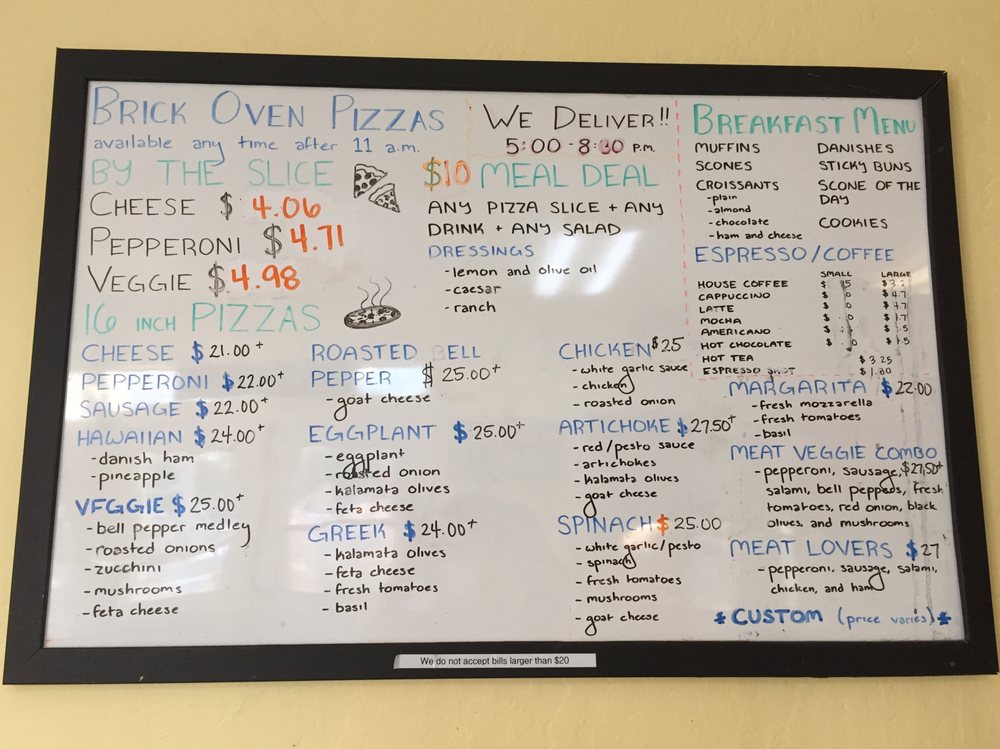 BRICK OVEN PIZZAS
available any time after 11 a.m.
BY THE SLICE
CHEESE $ 4.06
PEPPERONI $ 4.71
VEGGIE $ 4.98
WE DELIVER!!
5:00 - 8:30 P.M.
$10 MEAL DEAL
ANY PIZZA SLICE + ANY
DRINK + ANY SALAD
DRESSINGS
- lemon and olive oil
- caesar
- ranch
BREAKFAST MENU
MUFFINS
SCONES
CROISSANTS
- plain
- almond
- chocolate
- ham and cheese
DANISHES
STICKY BUNS
SCONE OF THE
DAY
COOKIES
ESPRESSO/COFFEE
SMALL LARGE
HOUSE COFFEE
CAPPUCCINO
LATTE
MOCHA
AMERICANO
HOT CHOCOLATE
HOT TEA $3.25
ESPRESSO SHOT $1.80
16 INCH PIZZAS
CHEESE $ 21.00+
PEPPERONI $ 22.00+
SAUSAGE $ 22.00+
HAWAIIAN $ 24.00+
- danish ham
- pineapple
VEGGIE $ 25.00+
- bell pepper medley
- roasted onions
- zucchini
- mushrooms
- feta cheese
ROASTED BELL
PEPPER $ 25.00+
- goat cheese
EGGPLANT $ 25.00+
- eggplant
- roasted onion
- kalamata olives
- feta cheese
GREEK $ 24.00+
- kalamata olives
- feta cheese
- fresh tomatoes
- basil
CHICKEN $25
- white garlic sauce
- chicken
- roasted onion
ARTICHOKE $ 27.50+
- red/pesto sauce
- artichokes
- kalamata olives
- goat cheese
SPINACH $ 25.00
- white garlic/pesto
- spinach
- fresh tomatoes
- mushrooms
- goat cheese
MARGARITA $ 22.00
- fresh mozzarella
- fresh tomatoes
- basil
MEAT VEGGIE COMBO
- pepperoni, sausage, $27.50+
salami, bell peppers, fresh
tomatoes, red onion, black
olives, and mushrooms
MEAT LOVERS $27
- pepperoni, sausage, salami,
chicken, and ham
* CUSTOM (price varies) *
We do not accept bills larger than $20